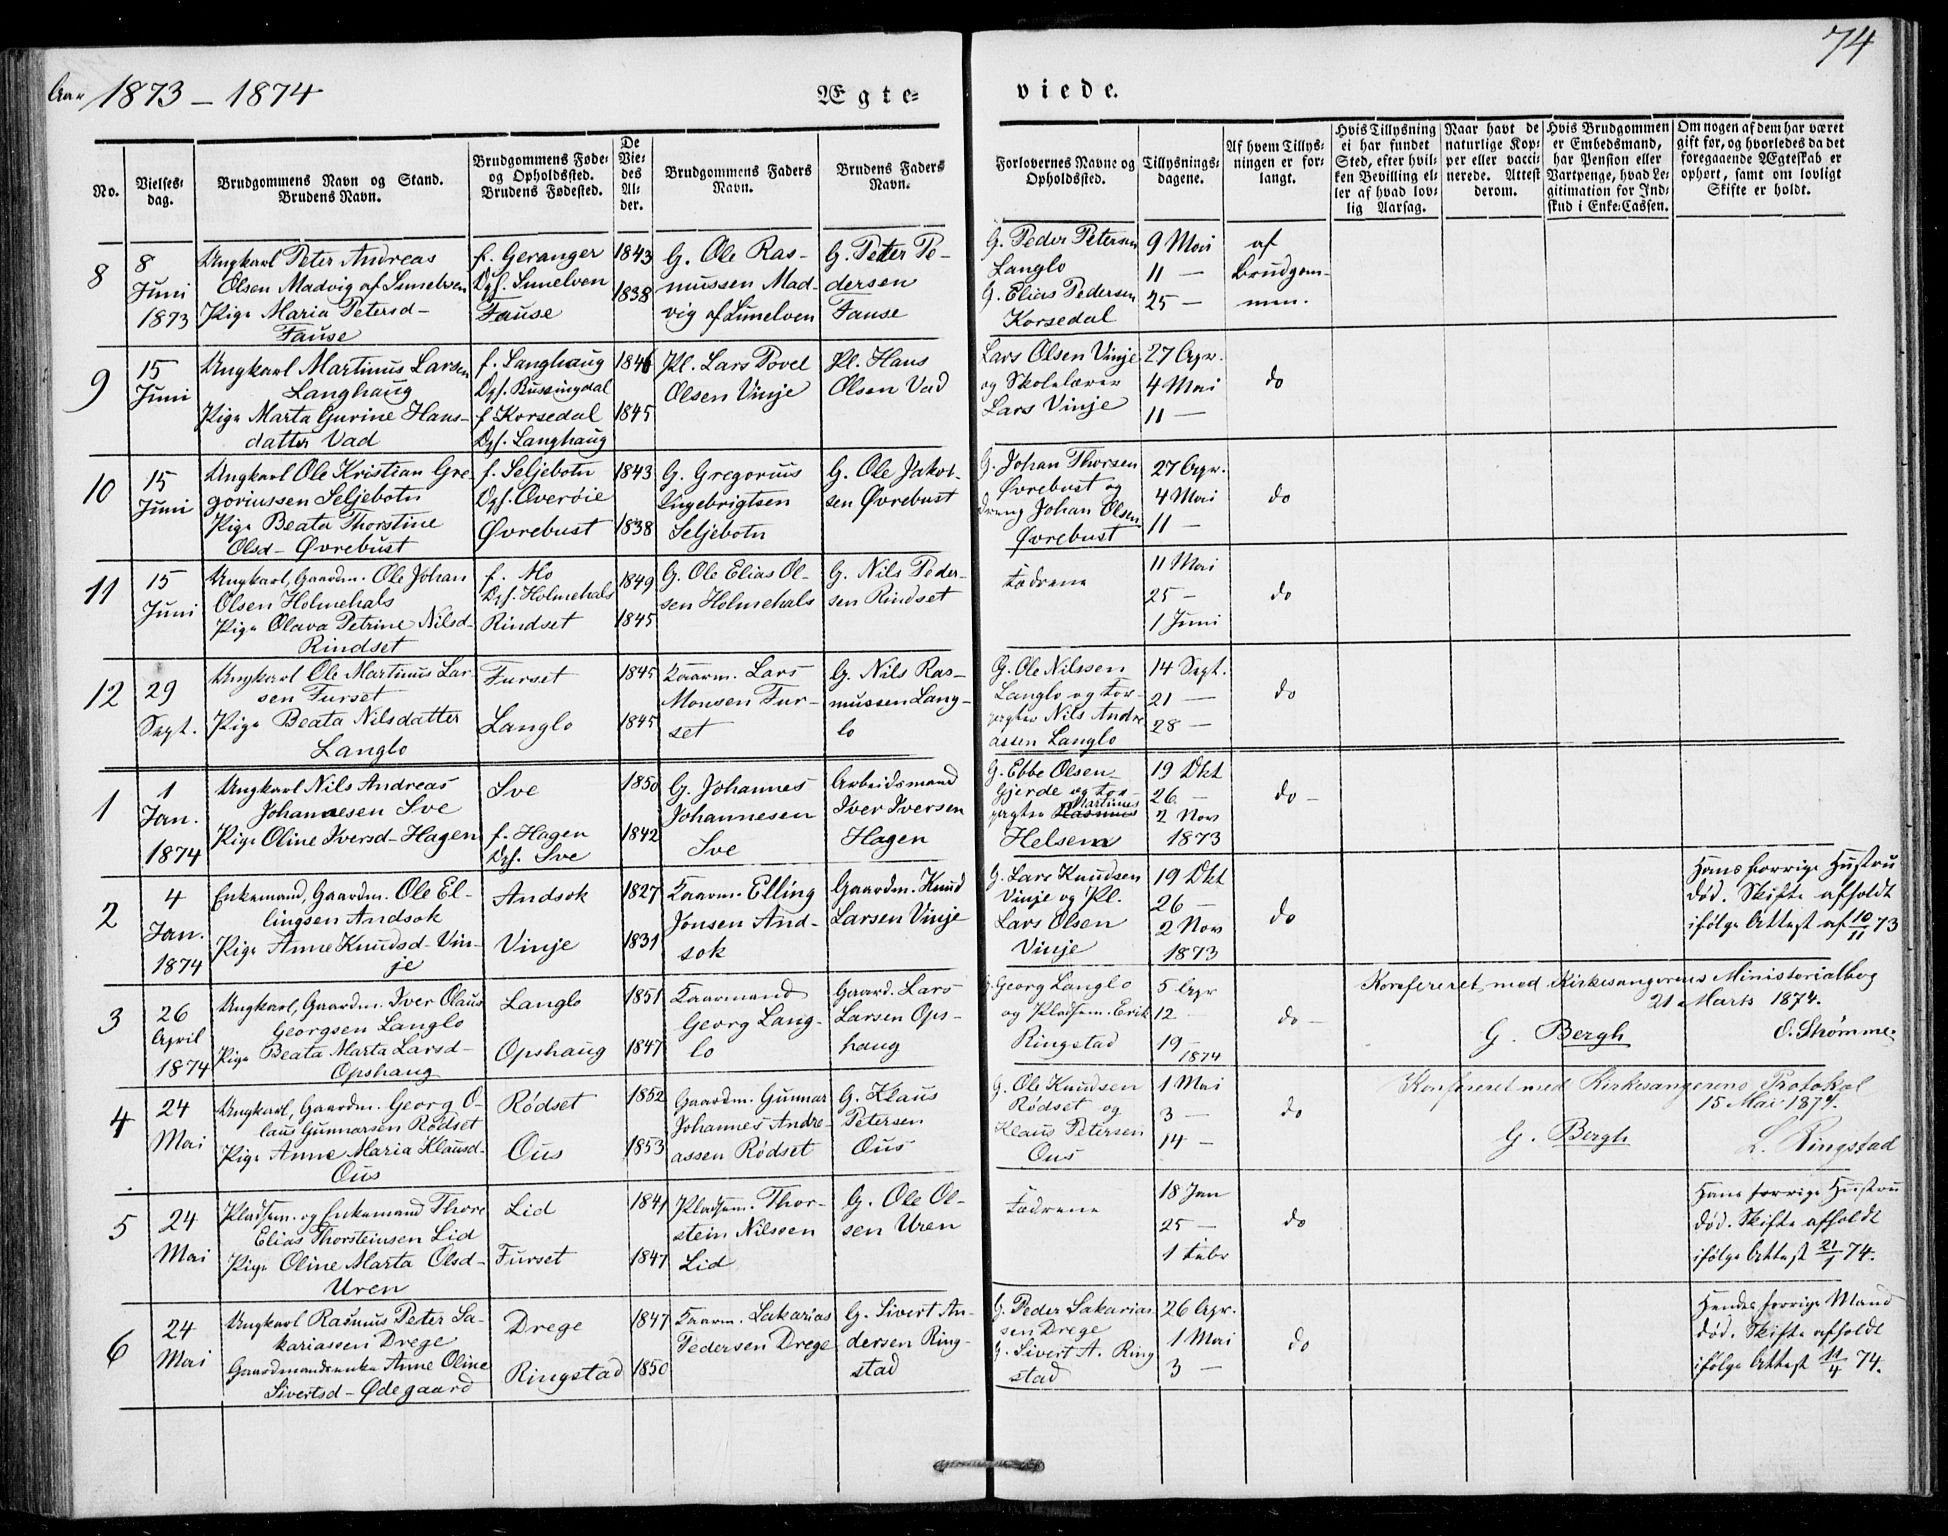 74
Aar 1873 – 1874
Ægte=
viede.
No.
Vielses-
dag.
Brudgommens Navn og Stand.
Brudens Navn.
Brudgommens Føde-
og Opholdssted.
Brudens Fødested.
De
Vie-
des
Al-
der.
Brudgommens Faders
Navn.
Brudens Faders
Navn.
Forlovernes Navne og
Opholdssted.
Tillysnings-
dagene.
Af hvem Tillys-
ningen er for-
langt.
Hvis Tillysning
ei har fundet
Sted, efter hvil-
ken Bevilling el-
ler af hvad lov-
lig Aarsag.
Naar havt de
naturlige Kop-
per eller vacci-
nerede. Attest
derom.
Hvis Brudgommen
er Embedsmand,
har Pension eller
Vartpenge, hvad Le-
gitimation for Ind-
skud i Enke-Cassen.
Om nogen af dem har været
gift før, og hvorledes da det
foregaaende Ægteskab er
ophørt, samt om lovligt
Skifte er holdt.
8
8
Juni
1873
Ungkarl Peter Andreas
Olsen Madvig af Sunelven
Pige Maria Petersd–
Fause
f. Geranger
Ogs. Sunelven
Fause
1843
1838
G. Ole Ras-
mussen Mad-
vig af Sunelven
G. Peter Pe-
dersen
Fause
G. Peder Petersen
Langlo
G. Elias Pedersen
Korsedal
9 Mai
11 —
25 —
af
Brudgom-
men.
9
15
Juni
Ungkarl Martinus Larsen
Langhaug
Pige Marta Gurine Hans-
datter Vad
f. Langhaug
Ogs. Bussingdal
f Korsedal
Ogs. Langhaug
1846
1845
Pl. Lars Povel
Olsen Vinje
Pl. Hans
Olsen Vad
Lars Olsen Vinje
og Skolelærer
Lars Vinje
27 Apr.
4 Mai
11 —
do
10
15
Juni
Ungkarl Ole Kristian Gre-
goriussen Seljebotn
Pige Beata Thorstine
Olsd– Øvrebust
f. Seljebotn
Ogs. Overøie
Øvrebust
1843
1838
G. Gregorius
Ingebrigtsen
Seljebotn
G. Ole Jakob-
sen Øvrebust
G. Johan Thorsen
Øvrebust og
dreng Johan Olsen
Øvrebust
27 Apr.
4 Mai
11 —
do
11
15
Juni
Ungkarl, Gaardm. Ole Johan
Olsen Holmehals
Pige Olava Petrine Nilsd–
Rindset
f. Mo
Ogs. Holmehals
Rindset
1849
1845
G. Ole Elias Ol-
sen Holmehals
G. Nils Peder-
sen Rindset
Fædrene
11 Mai
25 —
1 Juni
do
12
29
Sept.
Ungkarl Ole Martinus Lar-
sen Furset
Pige Beata Nilsdatter
Langlo
Furset
Langlo
1845
1845
Kaarm. Lars
Monsen Fur-
set
G. Nils Ras-
mussen Lang-
lo
G. Ole Nilssen
Langlo og For-
pagter Nils Andre
assen Langlo
14 Sept.
21 —
28 —
do
1
1
Jan.
1874
Ungkarl Nils Andreas
Johannesen Sve
Pige Oline Iversd– Hagen
Sve
f. Hagen
Ogs. Sve
1850
1842
G. Johannes
Johannesen
Sve
Arbeidsmand
Iver Iversen
Hagen
G. Ebbe Olsen
Gjerde og For-
pagter Rasmus Martinus
Helsem
19 Okt
26 —
2 Nov
1873
do –
2
4
Jan.
1874
Enkemand, Gaardm. Ole El-
lingsen Andsok
Pige Anne Knudsd– Vin-
je
Andsok
Vinje
1827
1831
Kaarm. Elling
Jonsen And-
sok
Gaardm. Knud
Larsen Vinje
G. Lars Knudsen
Vinje og Pl.
Lars Olsen
Vinje
19 Okt
26 —
2 Nov
1873
do
Hans forrige Hustru
død. Skifte afholdt
ifølge Attest af 10/11 73
3
26
April
1874
Ungkarl, Gaardm. Iver Olaus
Georgsen Langlo
Pige Beata Marta Larsd–
Opshaug
Langlo
Opshaug
1851
1847
Kaarmand
Georg Lang-
lo
Gaard. Lars
Larsen Ops-
haug
G. Georg Langlo
og Pladsem. Erik
Ringstad
5 Apr
12 —
19 —
1874
do –
Konfereret med Kirkesangerens Ministerialbog
21 Marts 1874.
G. Bergh
O. Strømme.
4
24
Mai
Ungkarl, Gaardm. Georg O-
laus Gunnarsen Rødset
Pige Anne Maria Klausd–
Ous
Rødset
Ous
1852
1853
Gaardm. Gunnar
Johannes Andre-
assen Rødset
G. Klaus
Petersen
Ous
G. Ole Knudsen
Rødset og
Klaus Petersen
Ous
1 Mai
3 —
14 —
do
Konfereret med Kirkesangerens Protokol
15 Mai 1874.
G. Bergh
L. Ringstad
5
24
Mai
Pladsem. og Enkemand Thore
Elias Thorsteinsen Lid
Pige Oline Marta Olsd–
Uren
Lid
Furset
1841
1847
Pladsem. Thor-
stein Nilssen
Lid
G. Ole Ol-
sen Uren
Fædrene
18 Jan
25 —
1 Febr
do
Hans forrige Hustru
død. Skifte afholdt
ifølge Attest 21/1 74.
6
24
Mai
Ungkarl Rasmus Peter Sa-
kariassen Drege
Gaardmandsenke Anne Oline
Sivertsd– Ødegaard
Drege
Ringstad
1847
1850
Kaarm. Sakarias
Pedersen Drege
G. Sivert An-
dersen Ring-
stad
G. Peder Sakarias
sen Drege
G. Sivert A. Ring
stad
26 Apr.
1 Mai
3 —
do
Hendes forrige Mand
død. Skifte afholdt
ifølge Attest 11/4 74.